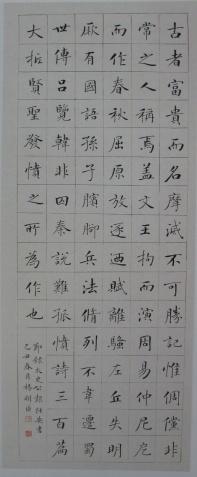 古者富貴而名摩滅不可勝記惟倜儻非
常之人稱焉蓋文王拘而演周易仲尼厄
而作春秋屈原放逐迺賦離騷左丘失明
厥有國語孫子臏腳兵法脩列不韋遷蜀
世傳呂覽韓非囚秦說難孤憤詩三百篇
大抵賢聖發憤之所為作也
節錄太史公報任安書
己丑春月